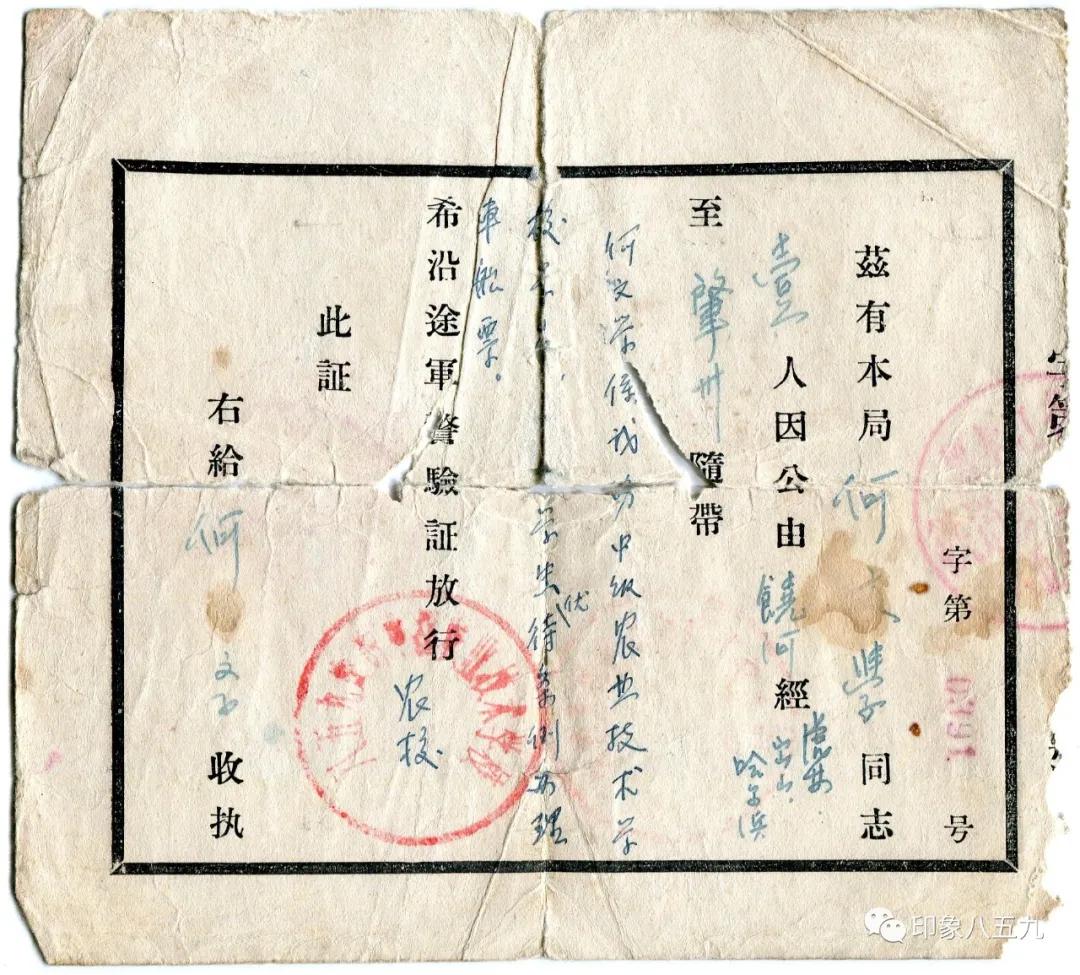 字第 0791 号
茲有本局 何文学 同志
壹 人因公由 饒河 經 虎林 宝山、哈尔滨
至 肇州 隨帶
何文学係我局中级农业技术学
校 学生优待条例办理
車船票。
希沿途軍警驗証放行
农校
此証
右給 何 文学 收执
字第
印象八五九